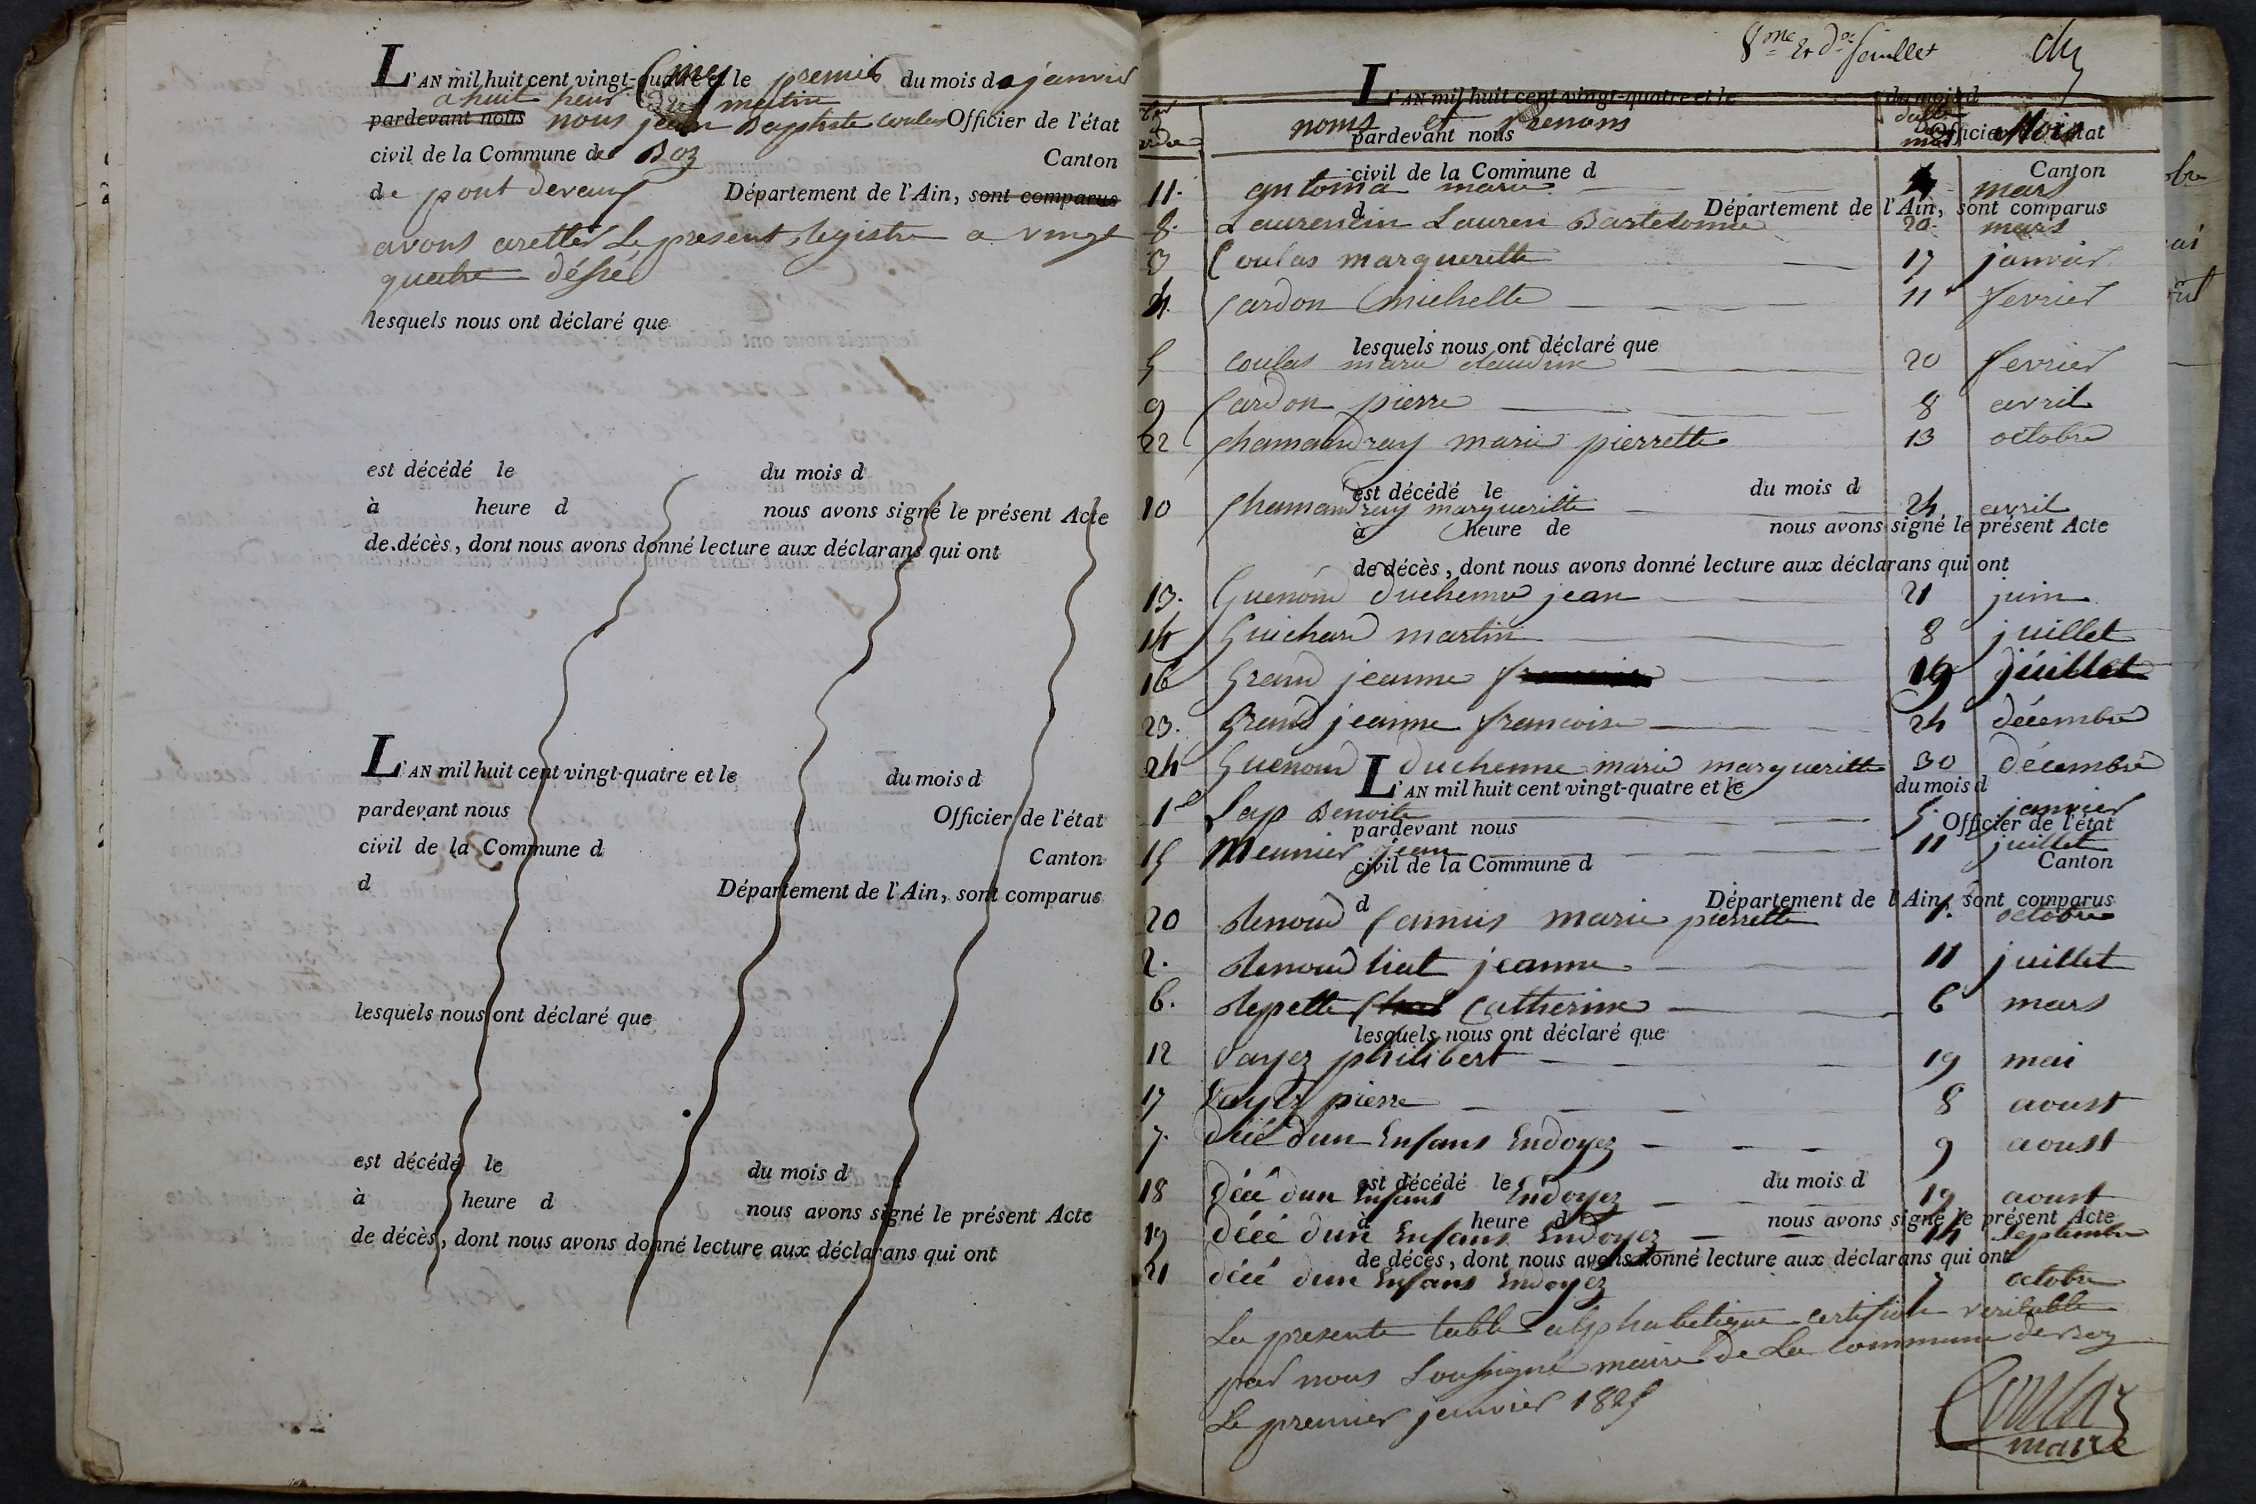 L'AN mil huit cent vingt-quatre cinq et le premier du mois de janvier
a huit heur du matin
pardevant nous nous jean Baptiste coulas Officier de l'état
civil de la Commune de Boz Canton
de pont devaux Département de l'Ain, sont comparus
avons aretter le present Registre a vingt
quatre déssé
lesquels nous ont déclaré que
est décédé le du mois d
à heure d nous avons signé le présent Acte
de décès, dont nous avons donné lecture aux déclarans qui ont
L'AN mil huit cent vingt-quatre et le du mois d
pardevant nous Officier de l'état
civil de la Commune d Canton
d Département de l'Ain, sont comparus
lesquels nous ont déclaré que
est décédé le du mois d
à heure d nous avons signé le présent Acte
de décès, dont nous avons donné lecture aux déclarans qui ont
8me et der feuillet
L'AN mil huit cent vingt-quatre et le du mois d
noms et prenoms Mois
pardevant nous Officier de l'état
civil de la Commune d Canton
11. antoma marie mars
d Département de l'Ain, sont comparus
8. Laurencin Lauren Bartelomie 20 mars
3 Coulas margueritte 17 janvier
4. Cardon michelle 11 fevrier
lesquels nous ont déclaré que
5 coulas marie claudine 20 fevrier
9 Cardon pierre 8 avril
22 Chamandray marie pierrette 13 octobre
est décédé le du mois d
10 Chamandray marguerite 24 avril
à heure de nous avons signé le présent Acte
de décès, dont nous avons donné lecture aux déclarans qui ont
13. Guenoud Duchenne jean 21 juin
14 Guichard martin 8 juillet
16 Grand jeanne 19 juillet
23. Grand jeanne francoise 24 décembre
24 Guenoud duchenne marie marguerite 30 décembre
L'AN mil huit cent vingt-quatre et le du mois d
1e Lap Benoite 5. janvier
pardevant nous Officier de l'état
15 Meunier jean 11 juillet
civil de la Commune d Canton
d Département de l'Ain, sont comparus
20 Renoud Camus marie pierrette 1. octobre
2. Renoud liat jeanne 11 juillet
6. Repette Catherine 6 mars
lesquels nous ont déclaré que
12 Vayez philibert 19 mai
17 Vayez pierre 8 aoust
7. décé dun Enfans Endoyez 9 aoust
est décédé le du mois d
18 décé dun Enfans Endoyez 19 aoust
à heure d nous avons signé le présent Acte
19 décé dun Enfans Endoyez 14 septembre
de décès, dont nous avons donné lecture aux déclarans qui ont
21 décé dun Enfans Endoyez 7 octobre
La presente table alphabetique certifiée veritable
par nous Soussigné maire de La commune de Boz
Le premier janvier 1825
Coulas
maire